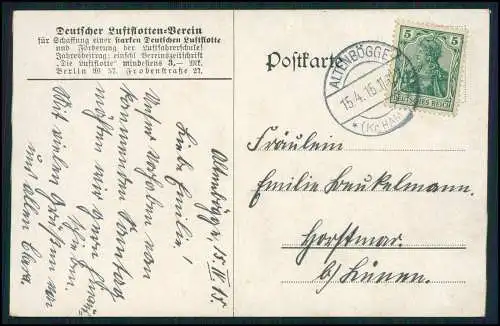 Deutscher Luftflotten-Verein
für Schaffung einer starken Deutschen Luftflotte
und Förderung der Luftfahrerschule!
Jahresbeitrag: einschl. Vereinszeitschrift
„Die Luftflotte“ mindestens 3,— Mk.
Berlin W 57, Frobenstraße 27.
Postkarte
ALTENBÖGGE
15.4.15.11
5 5
DEUTSCHES REICH
Altenbögge, 15. IV. 15.
Liebe Emilie!
Unser Vorhaben von
kommenden Sonntag
möchten wir gern
Mit vielen Grüßen von
uns allen Clara.
Fräulein
Emilie Beukelmann.
Horstmar.
b/ Lünen.